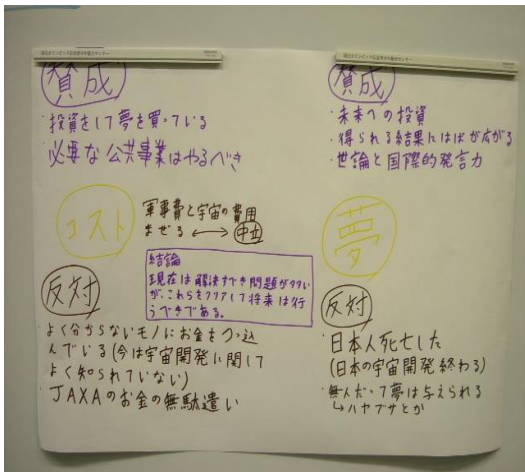 賛成
・投資をして夢を買っている
・必要な公共事業はやるべき
コスト
軍事費と宇宙の費用
まぜる ←→ 中立
結論
現在は解決すべき問題が多い
が、これらをクリアして将来は行
うべきである。
反対
・よく分からないモノにお金をつっ込
んでいる(今は宇宙開発に関して
よく知られていない)
・JAXAのお金の無駄遣い
賛成
・未来への投資
・得られる結果にはばが広がる
・世論と国際的発言力
夢
反対
・日本人死亡した
(日本の宇宙開発終わる)
・無人だって夢は与えられる
↳ハヤブサとか